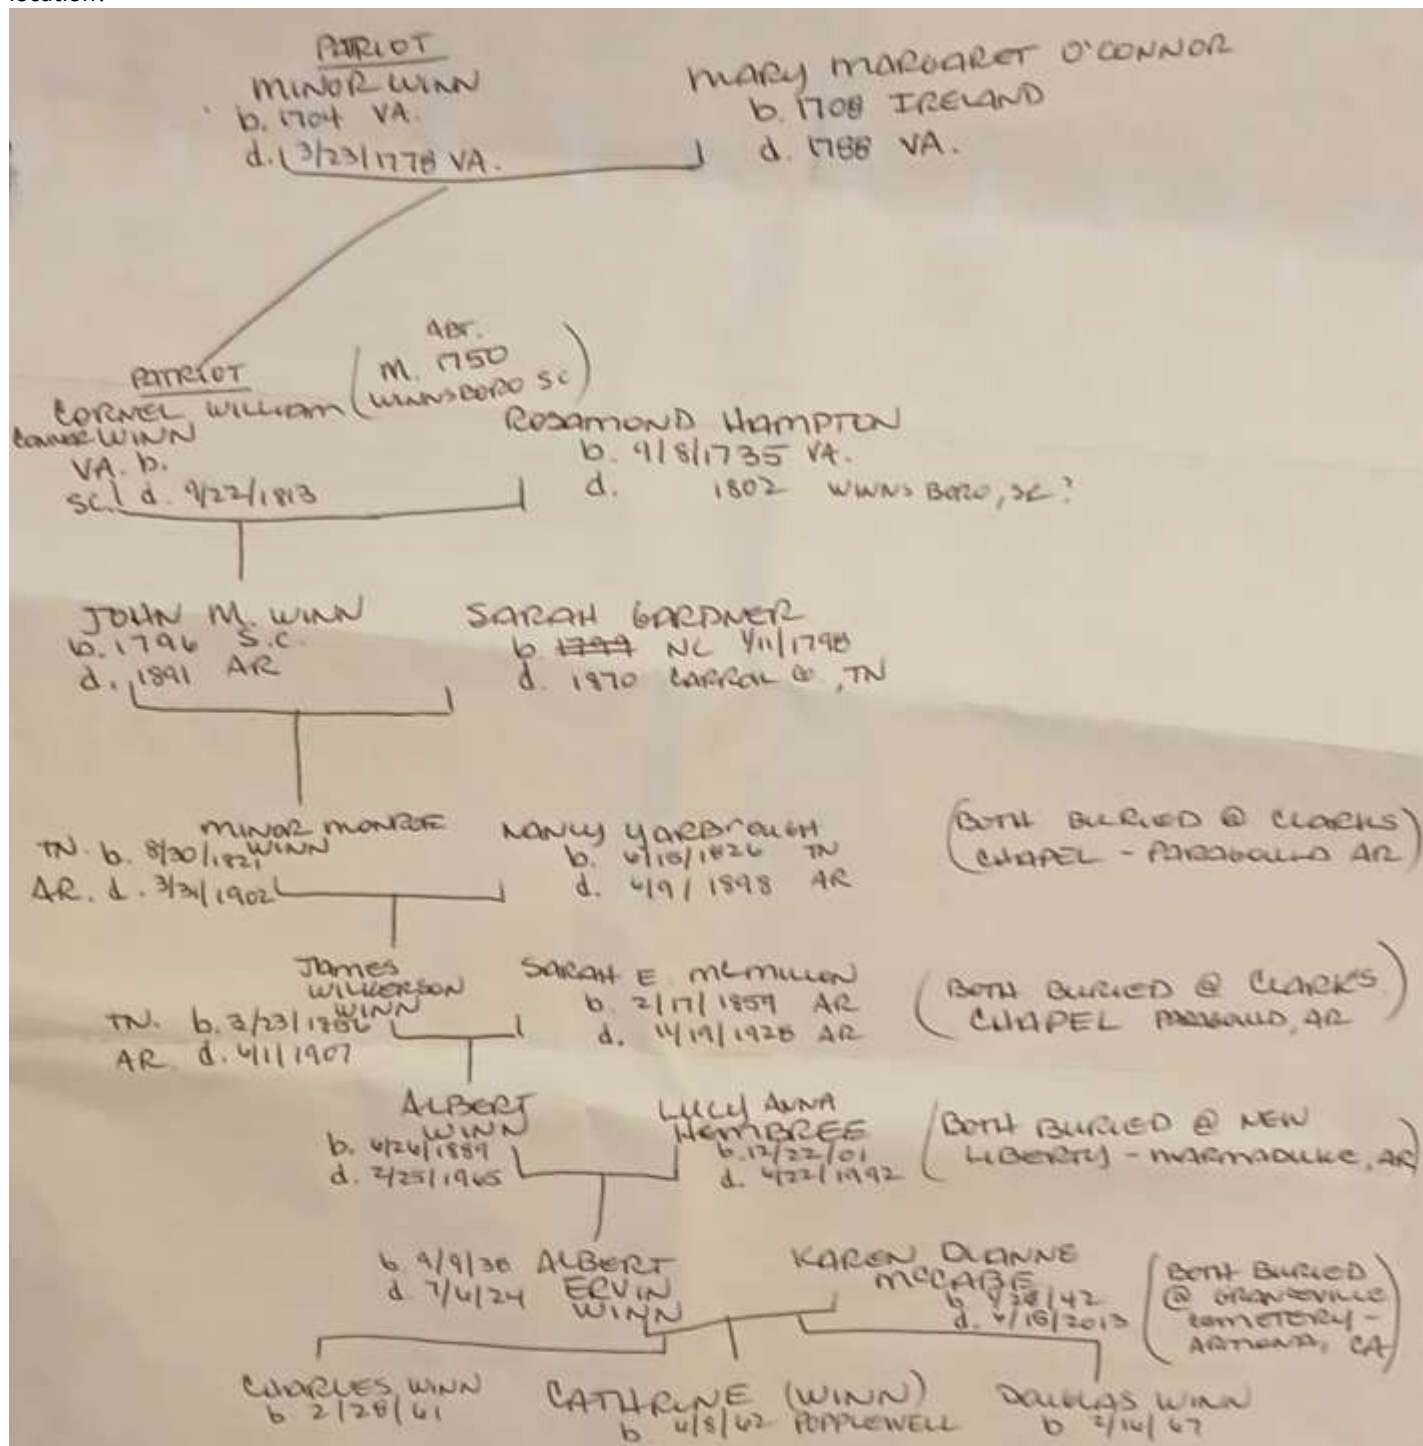 location?
PATRIOT
MINOR WINN
b. 1704 VA.
d. 3/23/1778 VA.
MARY MARGARET O'CONNOR
b. 1708 IRELAND
d. 1788 VA.
PATRIOT
CORNEL WILLIAM
CONNOR WINN
VA. b.
SC. d. 9/22/1813
ABT.
(M. 1750
WINNSBORO SC)
ROSAMOND HAMPTON
b. 9/8/1735 VA.
d. 1802 WINNSBORO, SC?
JOHN M. WINN
b. 1796 S.C.
d. 1891 AR
SARAH GARDNER
b 1799 NC 1/11/1798
d. 1870 CARROL CO, TN
MINOR MONROE
WINN
TN. b. 8/30/1821
AR. d. 3/31/1902
NANCY YARBROUGH
b. 6/15/1826 TN
d. 4/9/1898 AR
(BOTH BURIED @ CLARKS
CHAPEL - PARAGOULD AR)
JAMES
WILKERSON
WINN
TN. b. 3/23/
AR. d. 4/1/1907
SARAH E MCMILLON
b. 2/17/1859 AR
d. 11/19/1928 AR
(BOTH BURIED @ CLARKS
CHAPEL PARAGOULD, AR)
ALBERT
WINN
b. 6/26/1889
d. 2/25/1965
LUCY ANNA
HEMBREE
b. 12/22/01
d. 4/22/1992
(BOTH BURIED @ NEW
LIBERTY - MARMADUKE, AR)
b 9/9/38 ALBERT
d 7/6/24 ERVIN
WINN
KAREN DIANNE
MCCABE
b /42
d. /2013
(BOTH BURIED
@ GRANGEVILLE
CEMETERY -
ARMONA, CA)
CHARLES WINN
b 2/28/61
CATHRINE (WINN)
b. 6/8/62 POPPLEWELL
DOUGLAS WINN
b 2/16/67